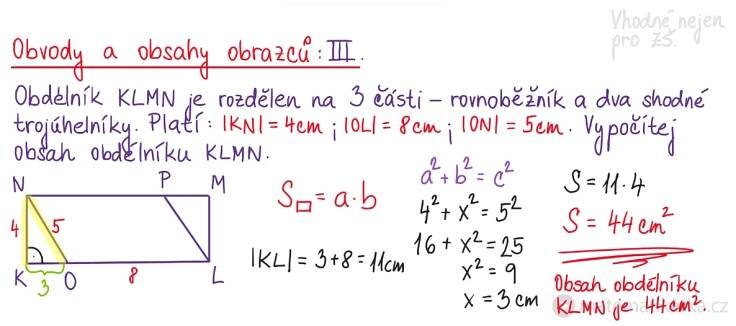 Vhodné nejen
pro ZŠ.
Obvody a obsahy obrazců: III.
Obdélník KLMN je rozdělen na 3 části – rovnoběžník a dva shodné
trojúhelníky. Platí: |KN| = 4cm ; |OL| = 8cm ; |ON| = 5cm. Vypočítej
obsah obdélníku KLMN.
N P M
4 5
K 3 O 8 L
S□ = a·b
|KL| = 3+8 = 11cm
a² + b² = c²
4² + x² = 5²
16 + x² = 25
x² = 9
x = 3 cm
S = 11·4
S = 44 cm²
Obsah obdélníku
KLMN je 44 cm².